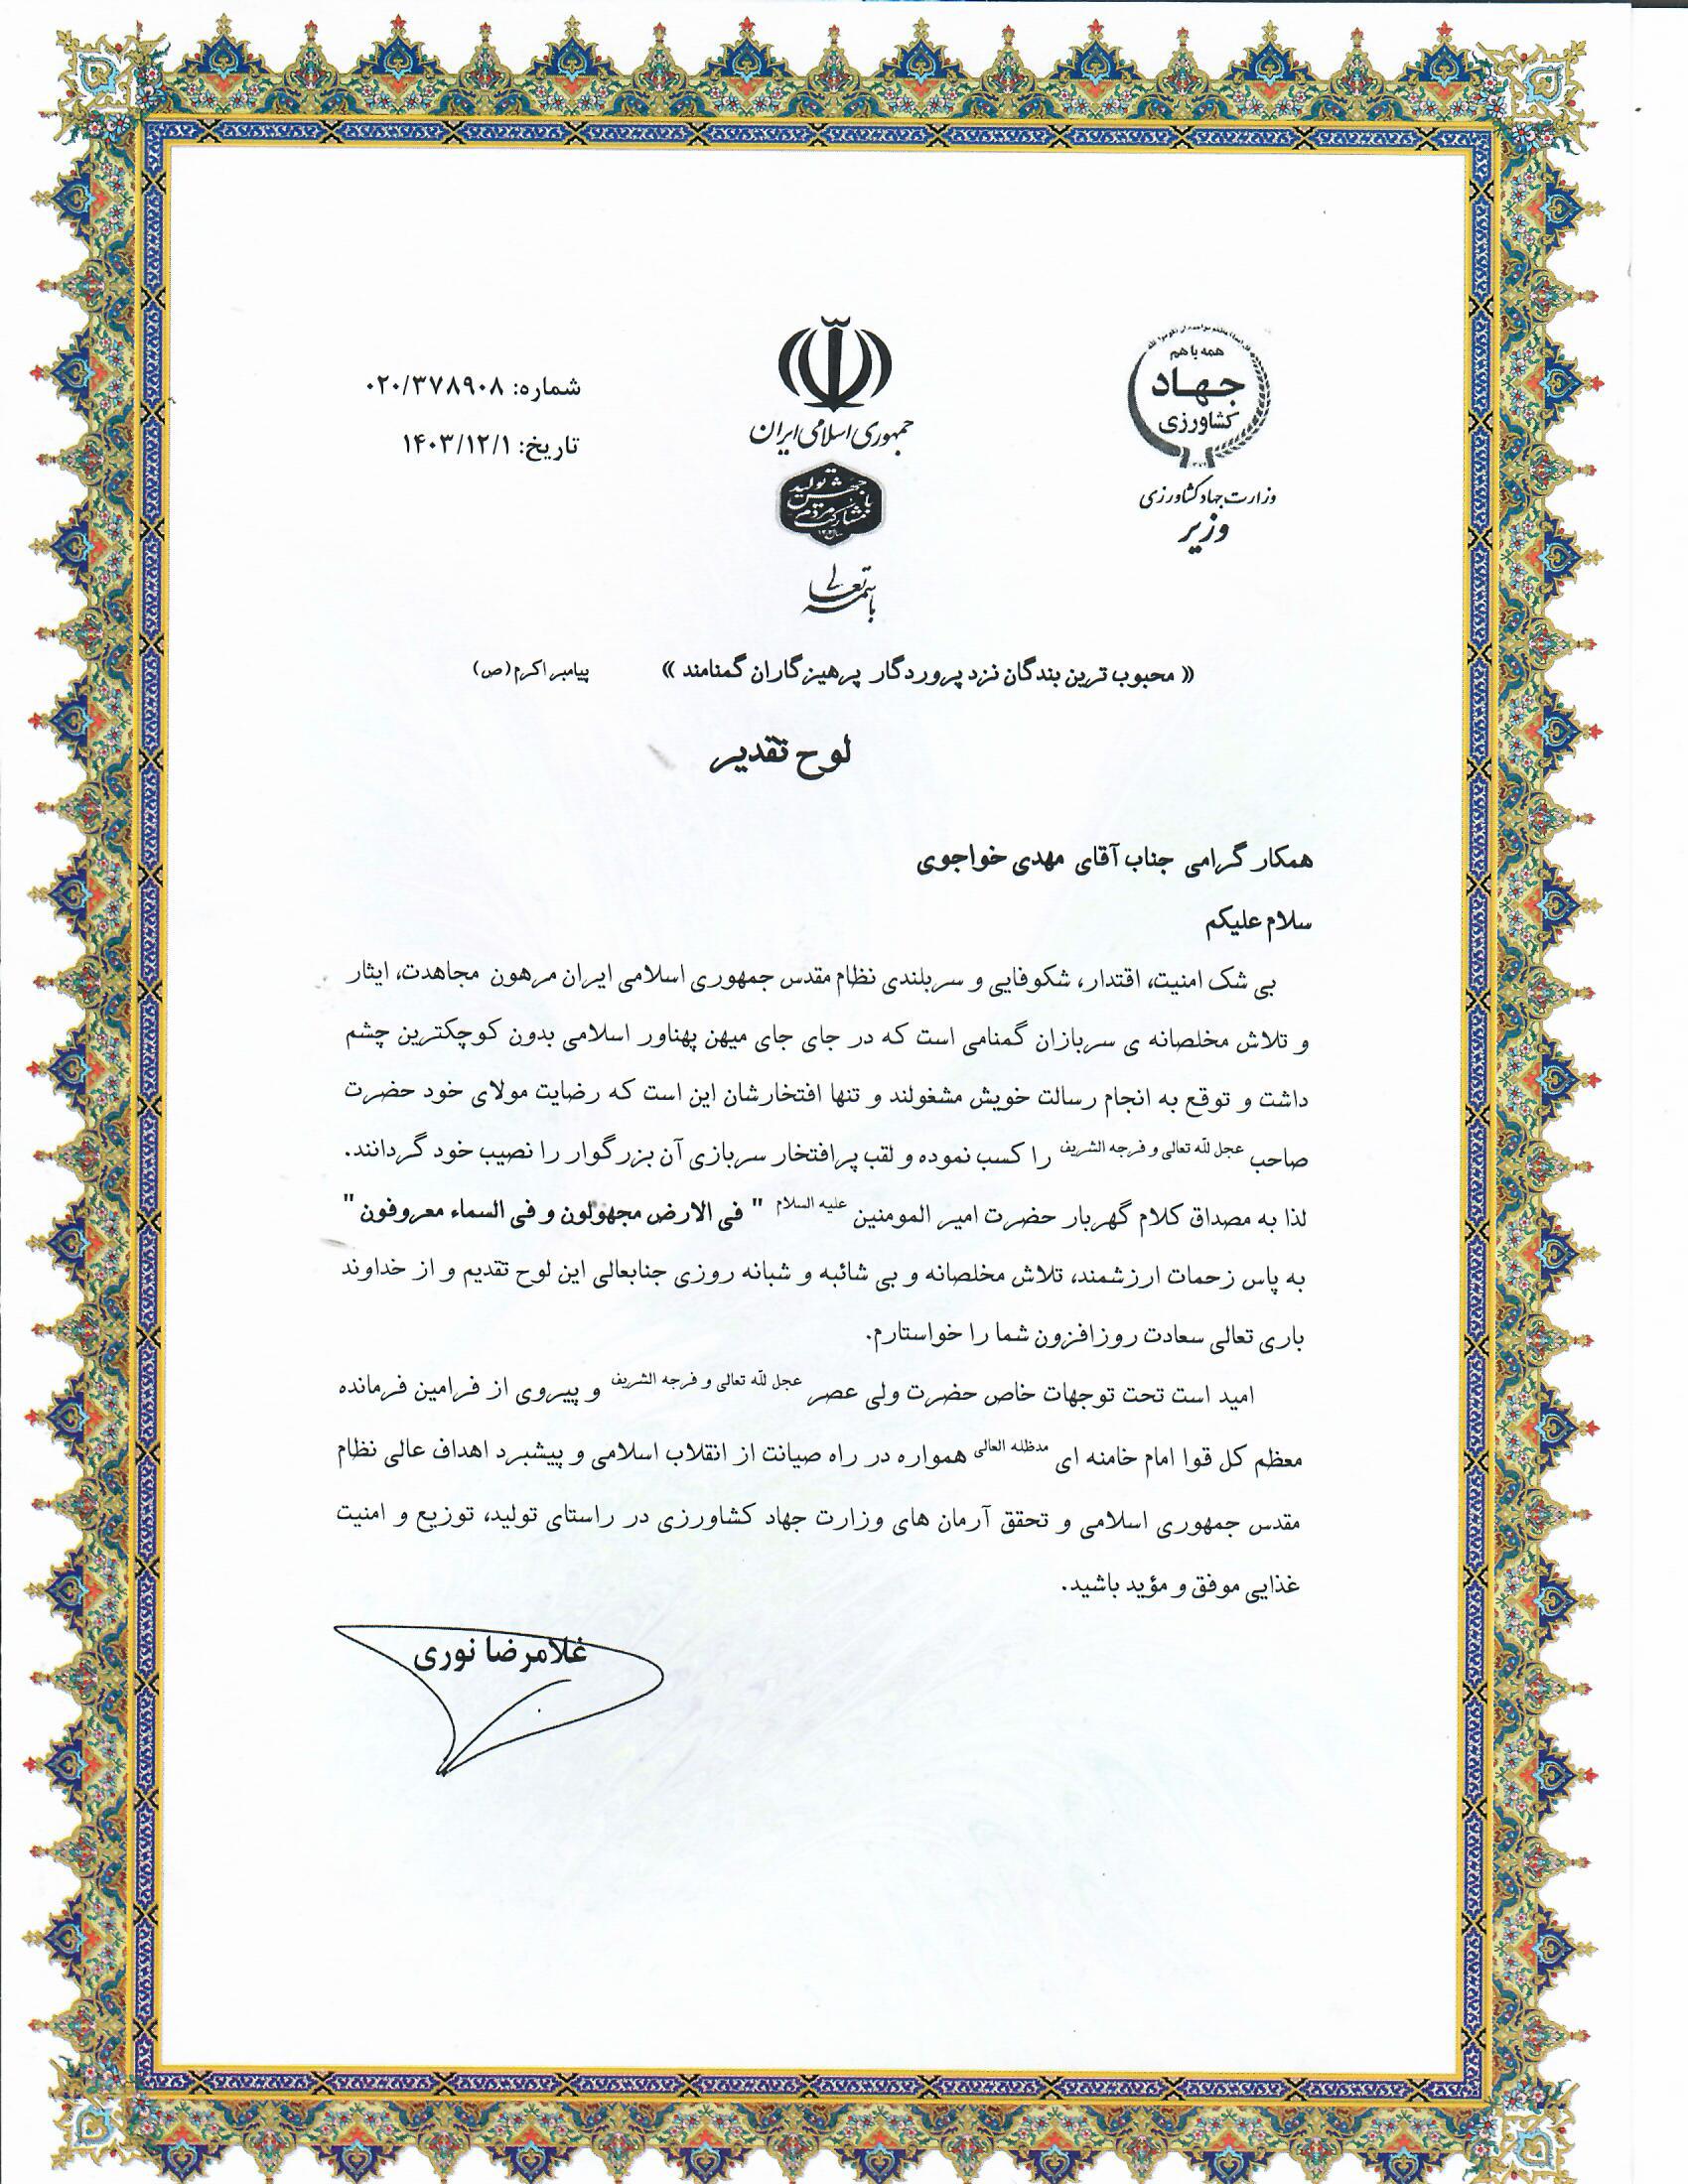 همه با هم
جهاد
کشاورزی
وزارت جهاد کشاورزی
وزیر
جمهوری اسلامی ایران
جهش تولید
با مشارکت مردم
باسمه تعالی
شماره: ۰۲۰/۳۷۸۹۰۸
تاریخ: ۱۴۰۳/۱۲/۱
« محبوب ترین بندگان نزد پروردگار پرهیزگاران گمنامند » پیامبر اکرم(ص)
لوح تقدیر
همکار گرامی جناب آقای مهدی خواجوی
سلام علیکم
بی شک امنیت، اقتدار، شکوفایی و سربلندی نظام مقدس جمهوری اسلامی ایران مرهون مجاهدت، ایثار
و تلاش مخلصانه ی سربازان گمنامی است که در جای جای میهن پهناور اسلامی بدون کوچکترین چشم
داشت و توقع به انجام رسالت خویش مشغولند و تنها افتخارشان این است که رضایت مولای خود حضرت
صاحب عجل لله تعالی و فرجه الشریف را کسب نموده و لقب پرافتخار سربازی آن بزرگوار را نصیب خود گردانند.
لذا به مصداق کلام گهربار حضرت امیر المومنین علیه السلام " فی الارض مجهولون و فی السماء معروفون "
به پاس زحمات ارزشمند، تلاش مخلصانه و بی شائبه و شبانه روزی جنابعالی این لوح تقدیم و از خداوند
باری تعالی سعادت روزافزون شما را خواستارم.
امید است تحت توجهات خاص حضرت ولی عصر عجل لله تعالی و فرجه الشریف و پیروی از فرامین فرمانده
معظم کل قوا امام خامنه ای مدظله العالی همواره در راه صیانت از انقلاب اسلامی و پیشبرد اهداف عالی نظام
مقدس جمهوری اسلامی و تحقق آرمان های وزارت جهاد کشاورزی در راستای تولید، توزیع و امنیت
غذایی موفق و مؤید باشید.
غلامرضا نوری